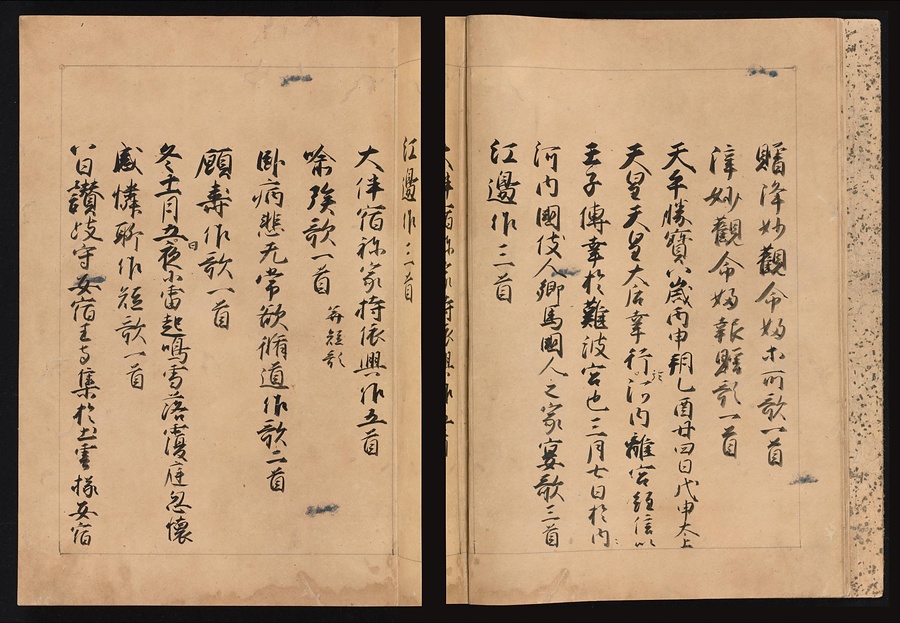 贈薩妙觀命婦等所歌一首
薩妙觀命婦報贈歌一首
天平勝寶八歳丙申朔乙酉廿四日戊申太上
天皇天皇大后幸行於河内離宮經信以
壬子傳幸於難波宮也三月七日於内
河内國伎人郷馬國人之家宴歌三首
江邊作三首
大伴宿祢家持依興作五首
江邊作三首
大伴宿祢家持依興作五首
喩族歌一首 并短歌
臥病悲无常欲脩道作歌二首
願壽作歌一首
冬十一月五日夜小雷起鳴雪落覆庭忽懷
感憐聊作短歌一首
八日讃岐守安宿王等集於出雲掾安宿